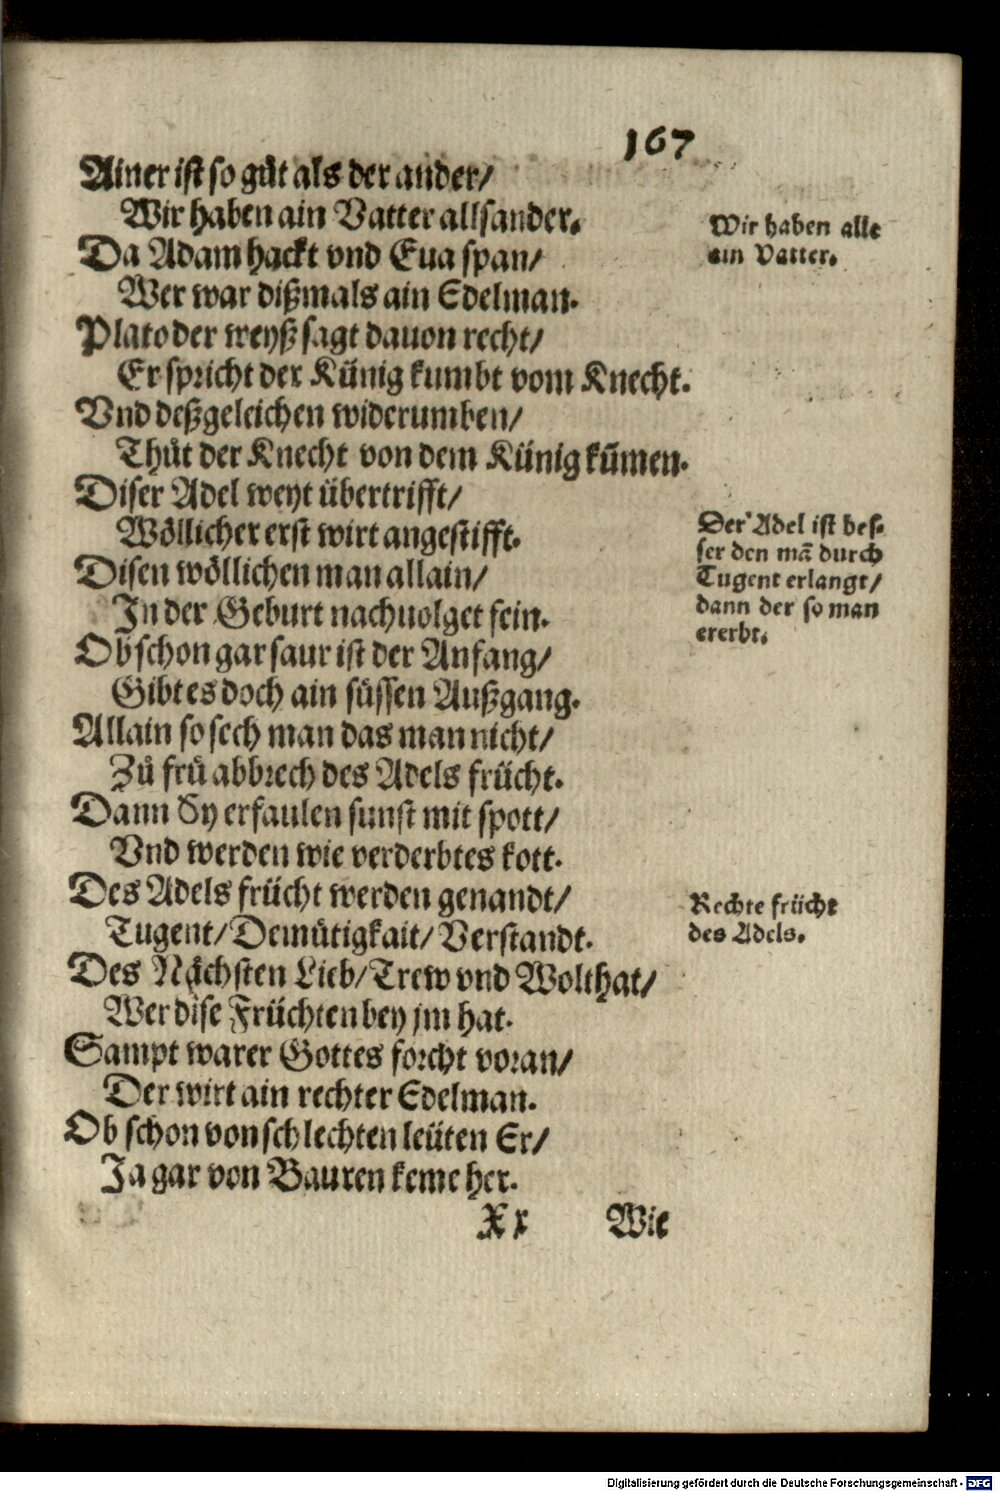 167
Ainer ist so gůt als der ander/
Wir haben ain Vatter allsander.
Wir haben alle
ain Vatter.
Da Adam hackt vnd Eua span/
Wer war dißmals ain Edelman.
Plato der weyß sagt dauon recht/
Er spricht der Künig kumbt vom Knecht.
Vnd deßgeleichen widerumben/
Thůt der Knecht von dem Künig kum̃en.
Diser Adel weyt übertrifft/
Wöllicher erst wirt angestifft.
Der Adel ist bes-
ser den mã durch
Tugent erlangt/
dann der so man
ererbt.
Disen wöllichen man allain/
In der Geburt nachuolget sein.
Ob schon gar saur ist der Anfang/
Gibt es doch ain süssen Außgang.
Allain so sech man das man nicht/
Zů frů abbrech des Adels frücht.
Dann Sy erfaulen sunst mit spott/
Vnd werden wie verderbtes kott.
Des Adels frücht werden genandt/
Tugent/ Demůtigkait/ Verstandt.
Rechte frücht
des Adels.
Des Nächsten Lieb/ Trew vnd Wolthat/
Wer dise Früchten bey jm hat.
Sampt warer Gottes forcht voran/
Der wirt ain rechter Edelman.
Ob schon von schlechten leüten Er/
Ja gar von Bauren keme her.
Xx Wie
Digitalisierung gefördert durch die Deutsche Forschungsgemeinschaft - DFG